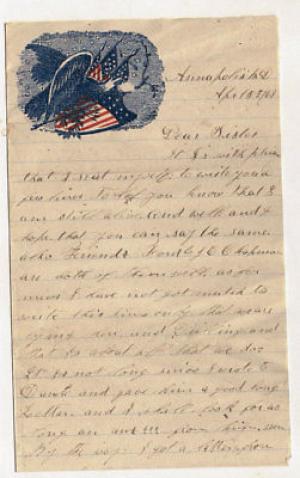 Annapolis Md
Dear Sister
It is with pleas
that I seat myself to write you a
few lines to let you know that I
am still alive and well and I
hope that you can say the same
also Friends Frank & C Chapman
are both of them well as ever
I have not got much to
write this time only that we are
lying in and
that is about all that we do
It is not long since I wrote to
and gave him a good long
Letter and I shall look for as
long an from him soon
By the way I got a letter from